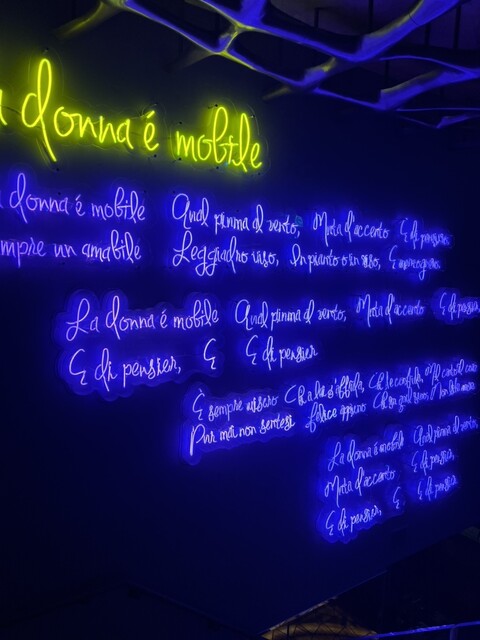 a donna é mobile
donna é mobile Qual piuma al vento, Muta d'accento E di pensier,
empre un amabile Leggiadro viso, In pianto o in riso, É menzogner.
La donna é mobile Qual piuma al vento, Muta d'accento E di pensier,
E di pensier, E E di pensier
É sempre misero Chi a lei s'affida, Chi le confida
Pur mai non sentesi Felice appieno Chi
La donna é mobile Qual piuma al vento,
Muta d'accento E di pensier,
E di pensier, E E di pensier